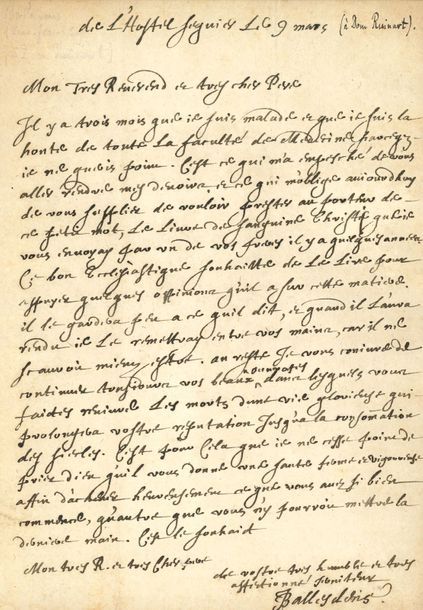 de L'Hostel seguier Le 9 mars (à Dom Ruinart).
Mon Tres Reverend et tres cher Pere
Il y a trois mois que je suis malade et que je suis la
honte de toute La faculté de Medecine parce que
je ne gueris point. C'est ce qui m'a empesché de vous
aller rendre mes devoirs et ce qui m'oblige aujourdhuy
de vous supplier de vouloir prester au porteur de
ce petit mot, Le Livre de sanguine Christi que je
vous envoyay par un de vos freres il y a quelques années
Ce bon Ecclesiastique souhaitte de Le Lire pour
appuyer quelques opinions qu'il a sur cette matiere.
il le gardera peu a ce qu'il dit, et quand il L'aura
rendu je Le remettray entre vos mains, car il ne
scauroit mieux estre. au reste Je vous conjure de
continuer tousjours vos beaux ouvrages dans lesquels vous
faictes revivre Les morts d'une vie glorieuse qui
prolongera vostre reputation Jusqu'a la consomation
des siecles. C'est pour Cela que je ne cesse point de
prier dieu qu'il vous donne une santé ferme et vigoureuse
affin d'achever heureusement ce que vous avez si bien
commencé, qu'autre que vous n'y pourroit mettre la
derniere main. C'est le souhait
Mon tres R. et tres Cher pere
de vostre tres humble et tres
affectionné serviteur
Ballesdens